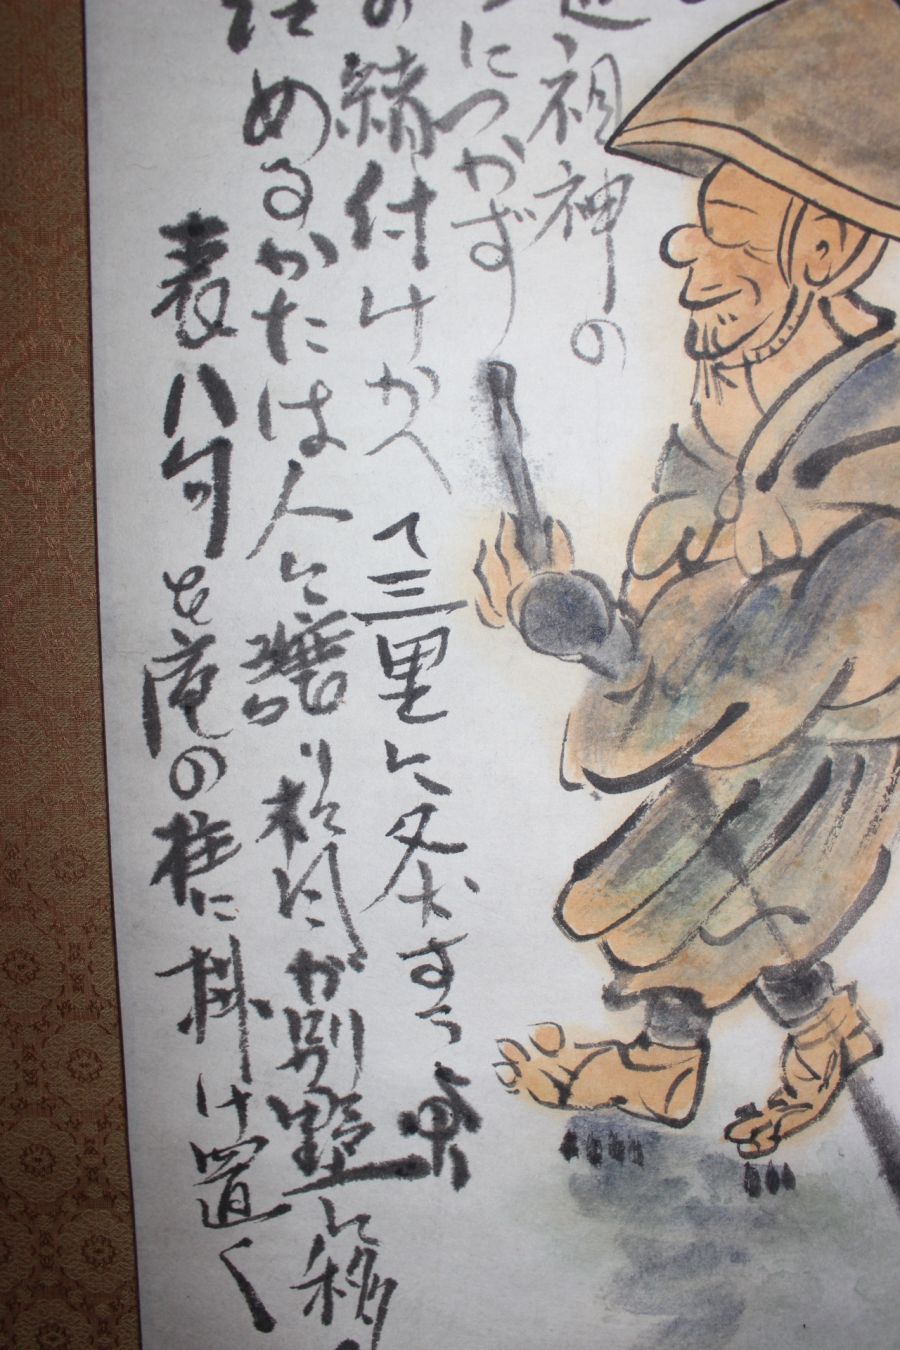 祖神の
につかず
の緒付けかへて三里に灸すう
めるかたは人に譲り杉風が別墅に移
表八句を庵の柱に掛け置く